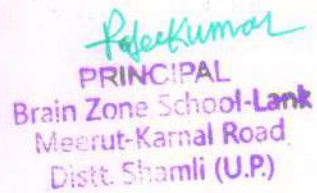 PRINCIPAL
Brain Zone School-Lank
Meerut-Karnal Road
Distt. Shamli (U.P.)